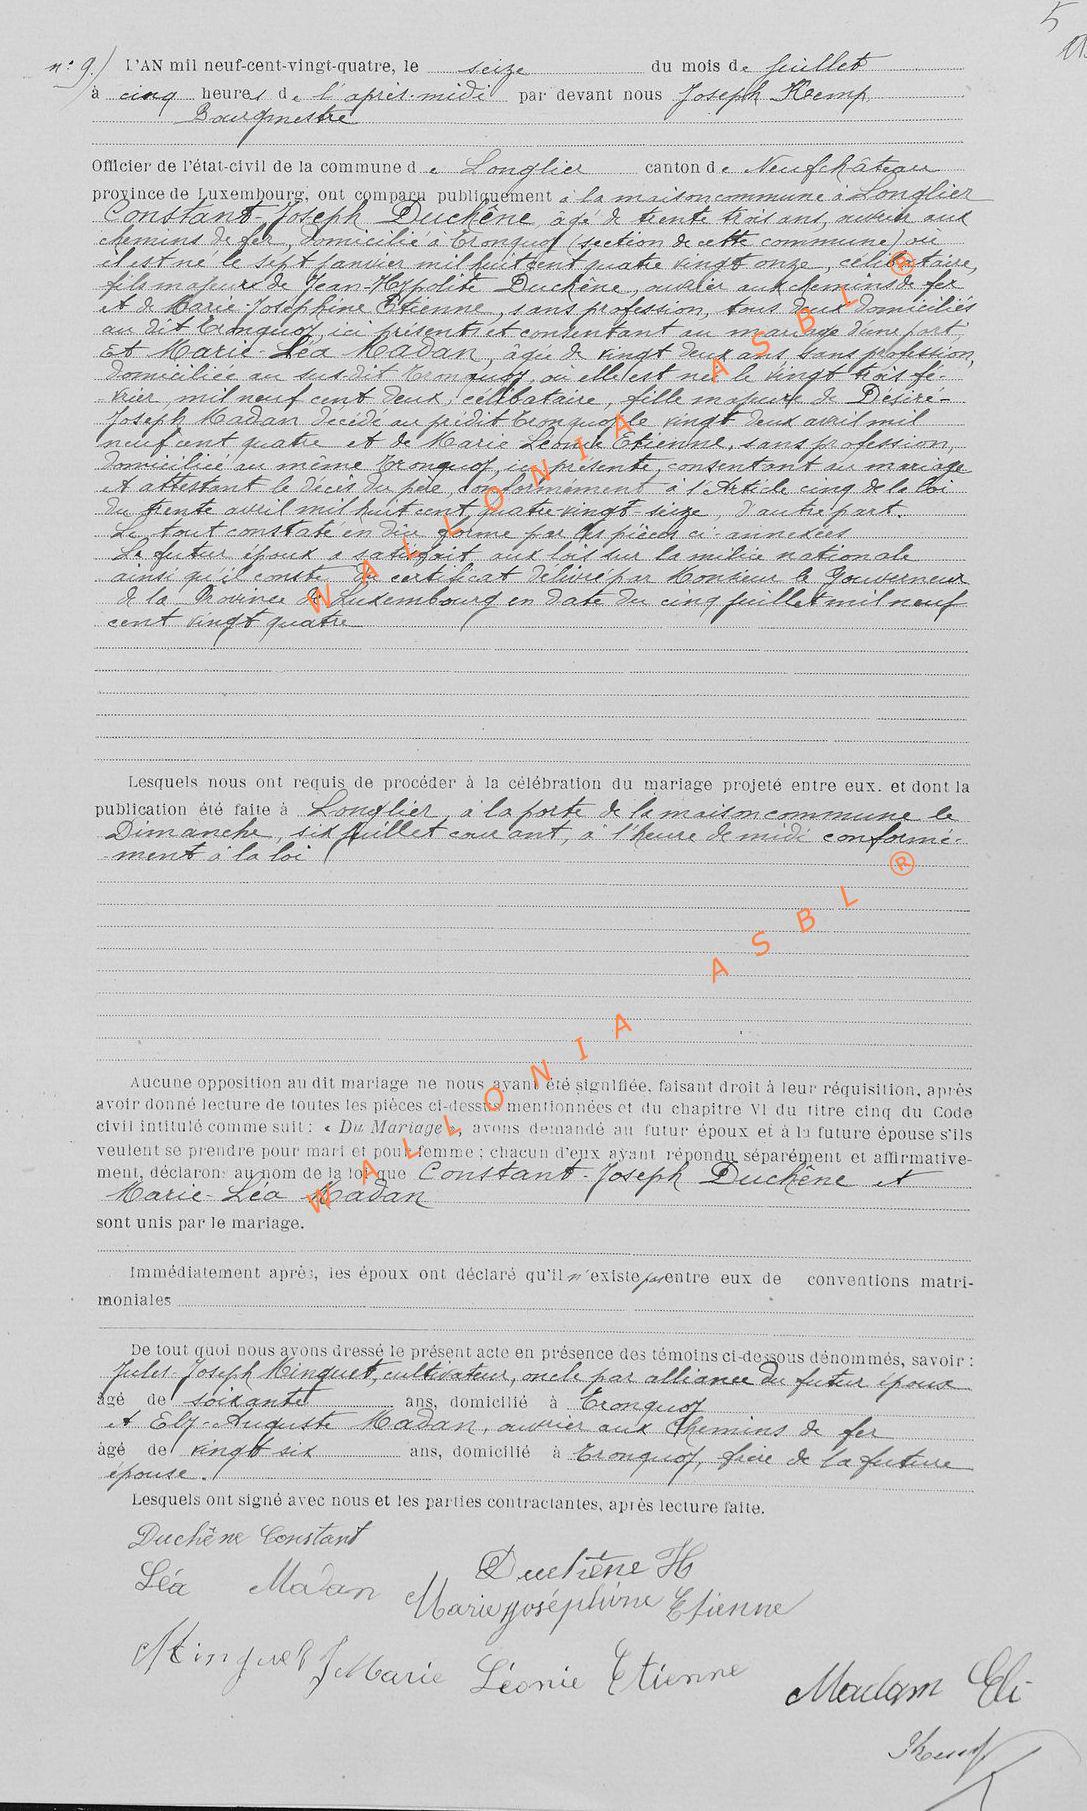 5
n° 9.) L'AN mil neuf-cent-vingt-quatre, le seize du mois de juillet
à cinq heures de l'après-midi par devant nous Joseph Kemp
Bourgmestre
Officier de l'état-civil de la commune de Longlier canton de Neufchâteau
province de Luxembourg, ont comparu publiquement à la maison commune à Longlier
Constant-Joseph Duchêne, âgé de trente trois ans, ouvrier aux
chemins de fer, domicilié à Tronquoy (section de cette commune) où
il est né le sept janvier mil huit cent quatre vingt onze, célibataire,
fils majeur de Jean-Hypolite Duchêne, ouvrier aux chemins de fer
et de Marie-Joséphine Etienne, sans profession, tous deux domiciliés
au dit Tronquoy, ici présents et consentant au mariage d'une part;
Et Marie-Léa Madan, âgée de vingt deux ans, sans profession,
domiciliée au sus-dit Tronquoy, où elle est née le vingt trois fé-
vrier mil neuf cent deux, célibataire, fille majeure de Désiré-
Joseph Madan décédé au prédit Tronquoy le vingt deux avril mil
neuf cent quatre et de Marie Léonie Etienne, sans profession,
domiciliée au même Tronquoy, ici présente, consentant au mariage
et attestant le décès du père, conformément à l'Article cinq de la loi
du trente avril mil huit cent quatre vingt-seize, d'autre part.
Le tout constaté en due forme par les pièces ci-annexées
Le futur époux a satisfait aux lois sur la milice nationale
ainsi qu'il conste du certificat délivré par Monsieur le Gouverneur
de la Province de Luxembourg en date du cinq juillet mil neuf
cent vingt quatre
WALLONIA ASBL ®
Lesquels nous ont requis de procéder à la célébration du mariage projeté entre eux. et dont la
publication été faite à Longlier, à la porte de la maison commune le
Dimanche, six juillet courant, à l'heure de midi conformé-
ment à la loi
WALLONIA ASBL ®
Aucune opposition au dit mariage ne nous ayant été signifiée, faisant droit à leur réquisition, après
avoir donné lecture de toutes les pièces ci-dessus mentionnées et du chapitre VI du titre cinq du Code
civil intitulé comme suit : « Du Mariage », avons demandé au futur époux et à la future épouse s'ils
veulent se prendre pour mari et pour femme ; chacun d'eux ayant répondu séparément et affirmative-
ment, déclarons au nom de la loi que Constant-Joseph Duchêne et
Marie-Léa Madan
sont unis par le mariage.
Immédiatement après, les époux ont déclaré qu'il n'existe pas entre eux de conventions matri-
moniales
De tout quoi nous avons dressé le présent acte en présence des témoins ci-dessous dénommés, savoir :
Jules-Joseph Minguet, cultivateur, oncle par alliance du futur époux
âgé de soixante ans, domicilié à Tronquoy
et Ely-Auguste Madan, ouvrier aux chemins de fer
âgé de vingt six ans, domicilié à Tronquoy, frère de la future
épouse.
Lesquels ont signé avec nous et les parties contractantes, après lecture faite.
Duchêne Constant
Duchêne H
Léa Madan Marie Joséphine Etienne
Minguet J Marie Léonie Etienne
Madan Eli
Kemp